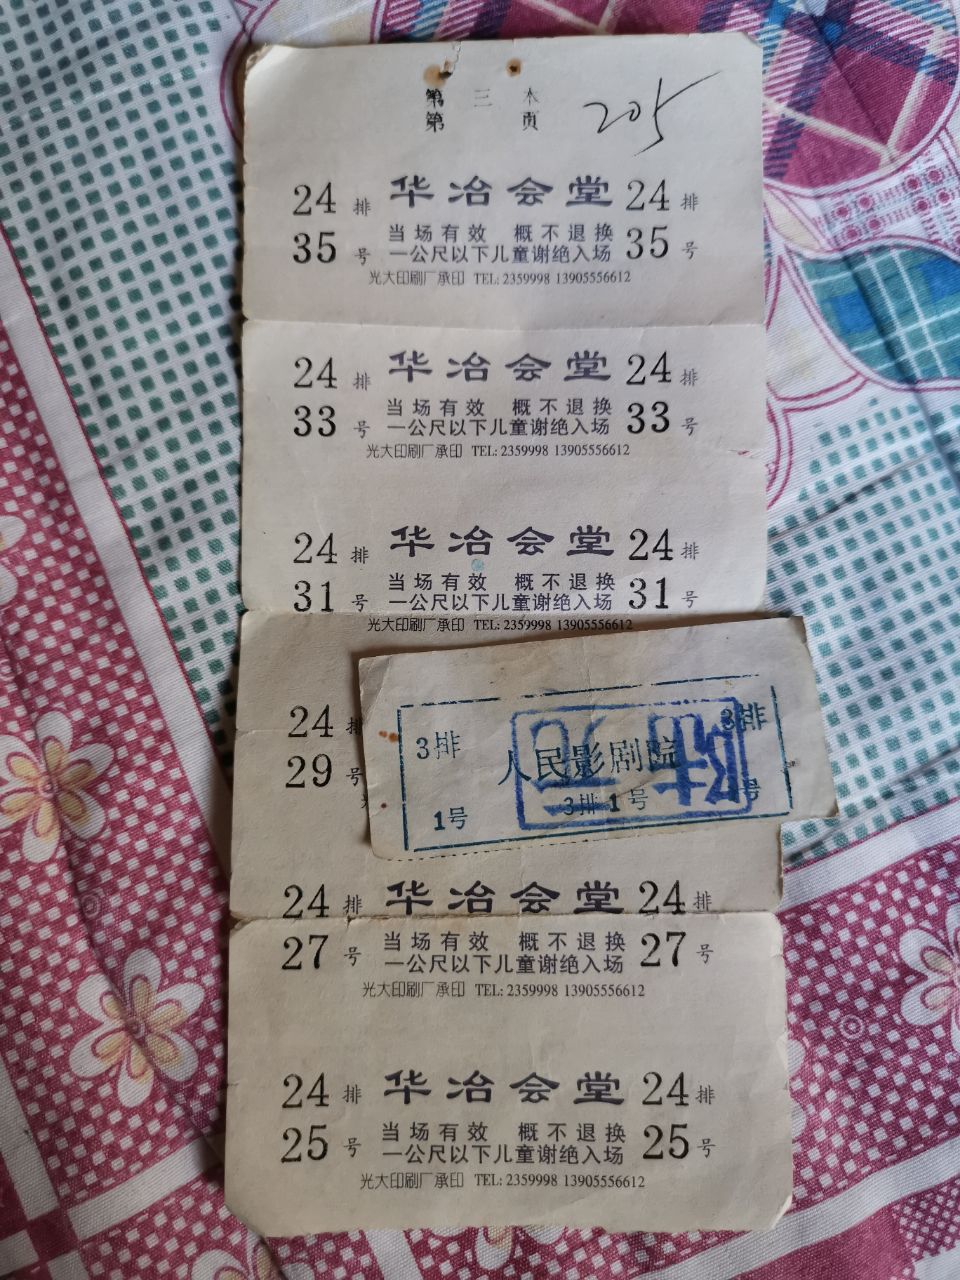 第 三 本
第 页
205
24 排 华冶会堂 24 排
35 号 当场有效 概不退换 35 号
一公尺以下儿童谢绝入场
光大印刷厂承印 TEL: 2359998 13905556612
24 排 华冶会堂 24 排
33 号 当场有效 概不退换 33 号
一公尺以下儿童谢绝入场
光大印刷厂承印 TEL: 2359998 13905556612
24 排 华冶会堂 24 排
31 号 当场有效 概不退换 31 号
一公尺以下儿童谢绝入场
光大印刷厂承印 TEL: 2359998 13905556612
24 排
29 号
3排 人民影剧院 3排
1号 3排1号 号
24 排 华冶会堂 24 排
27 号 当场有效 概不退换 27 号
一公尺以下儿童谢绝入场
光大印刷厂承印 TEL: 2359998 13905556612
24 排 华冶会堂 24 排
25 号 当场有效 概不退换 25 号
一公尺以下儿童谢绝入场
光大印刷厂承印 TEL: 2359998 13905556612